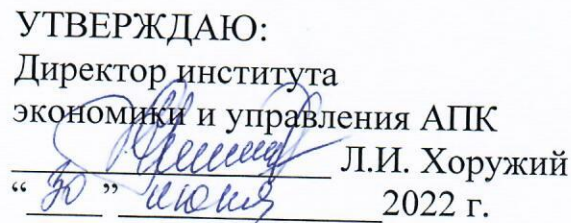 УТВЕРЖДАЮ:
Директор института
экономики и управления АПК
Л.И. Хоружий
“30” июня 2022 г.